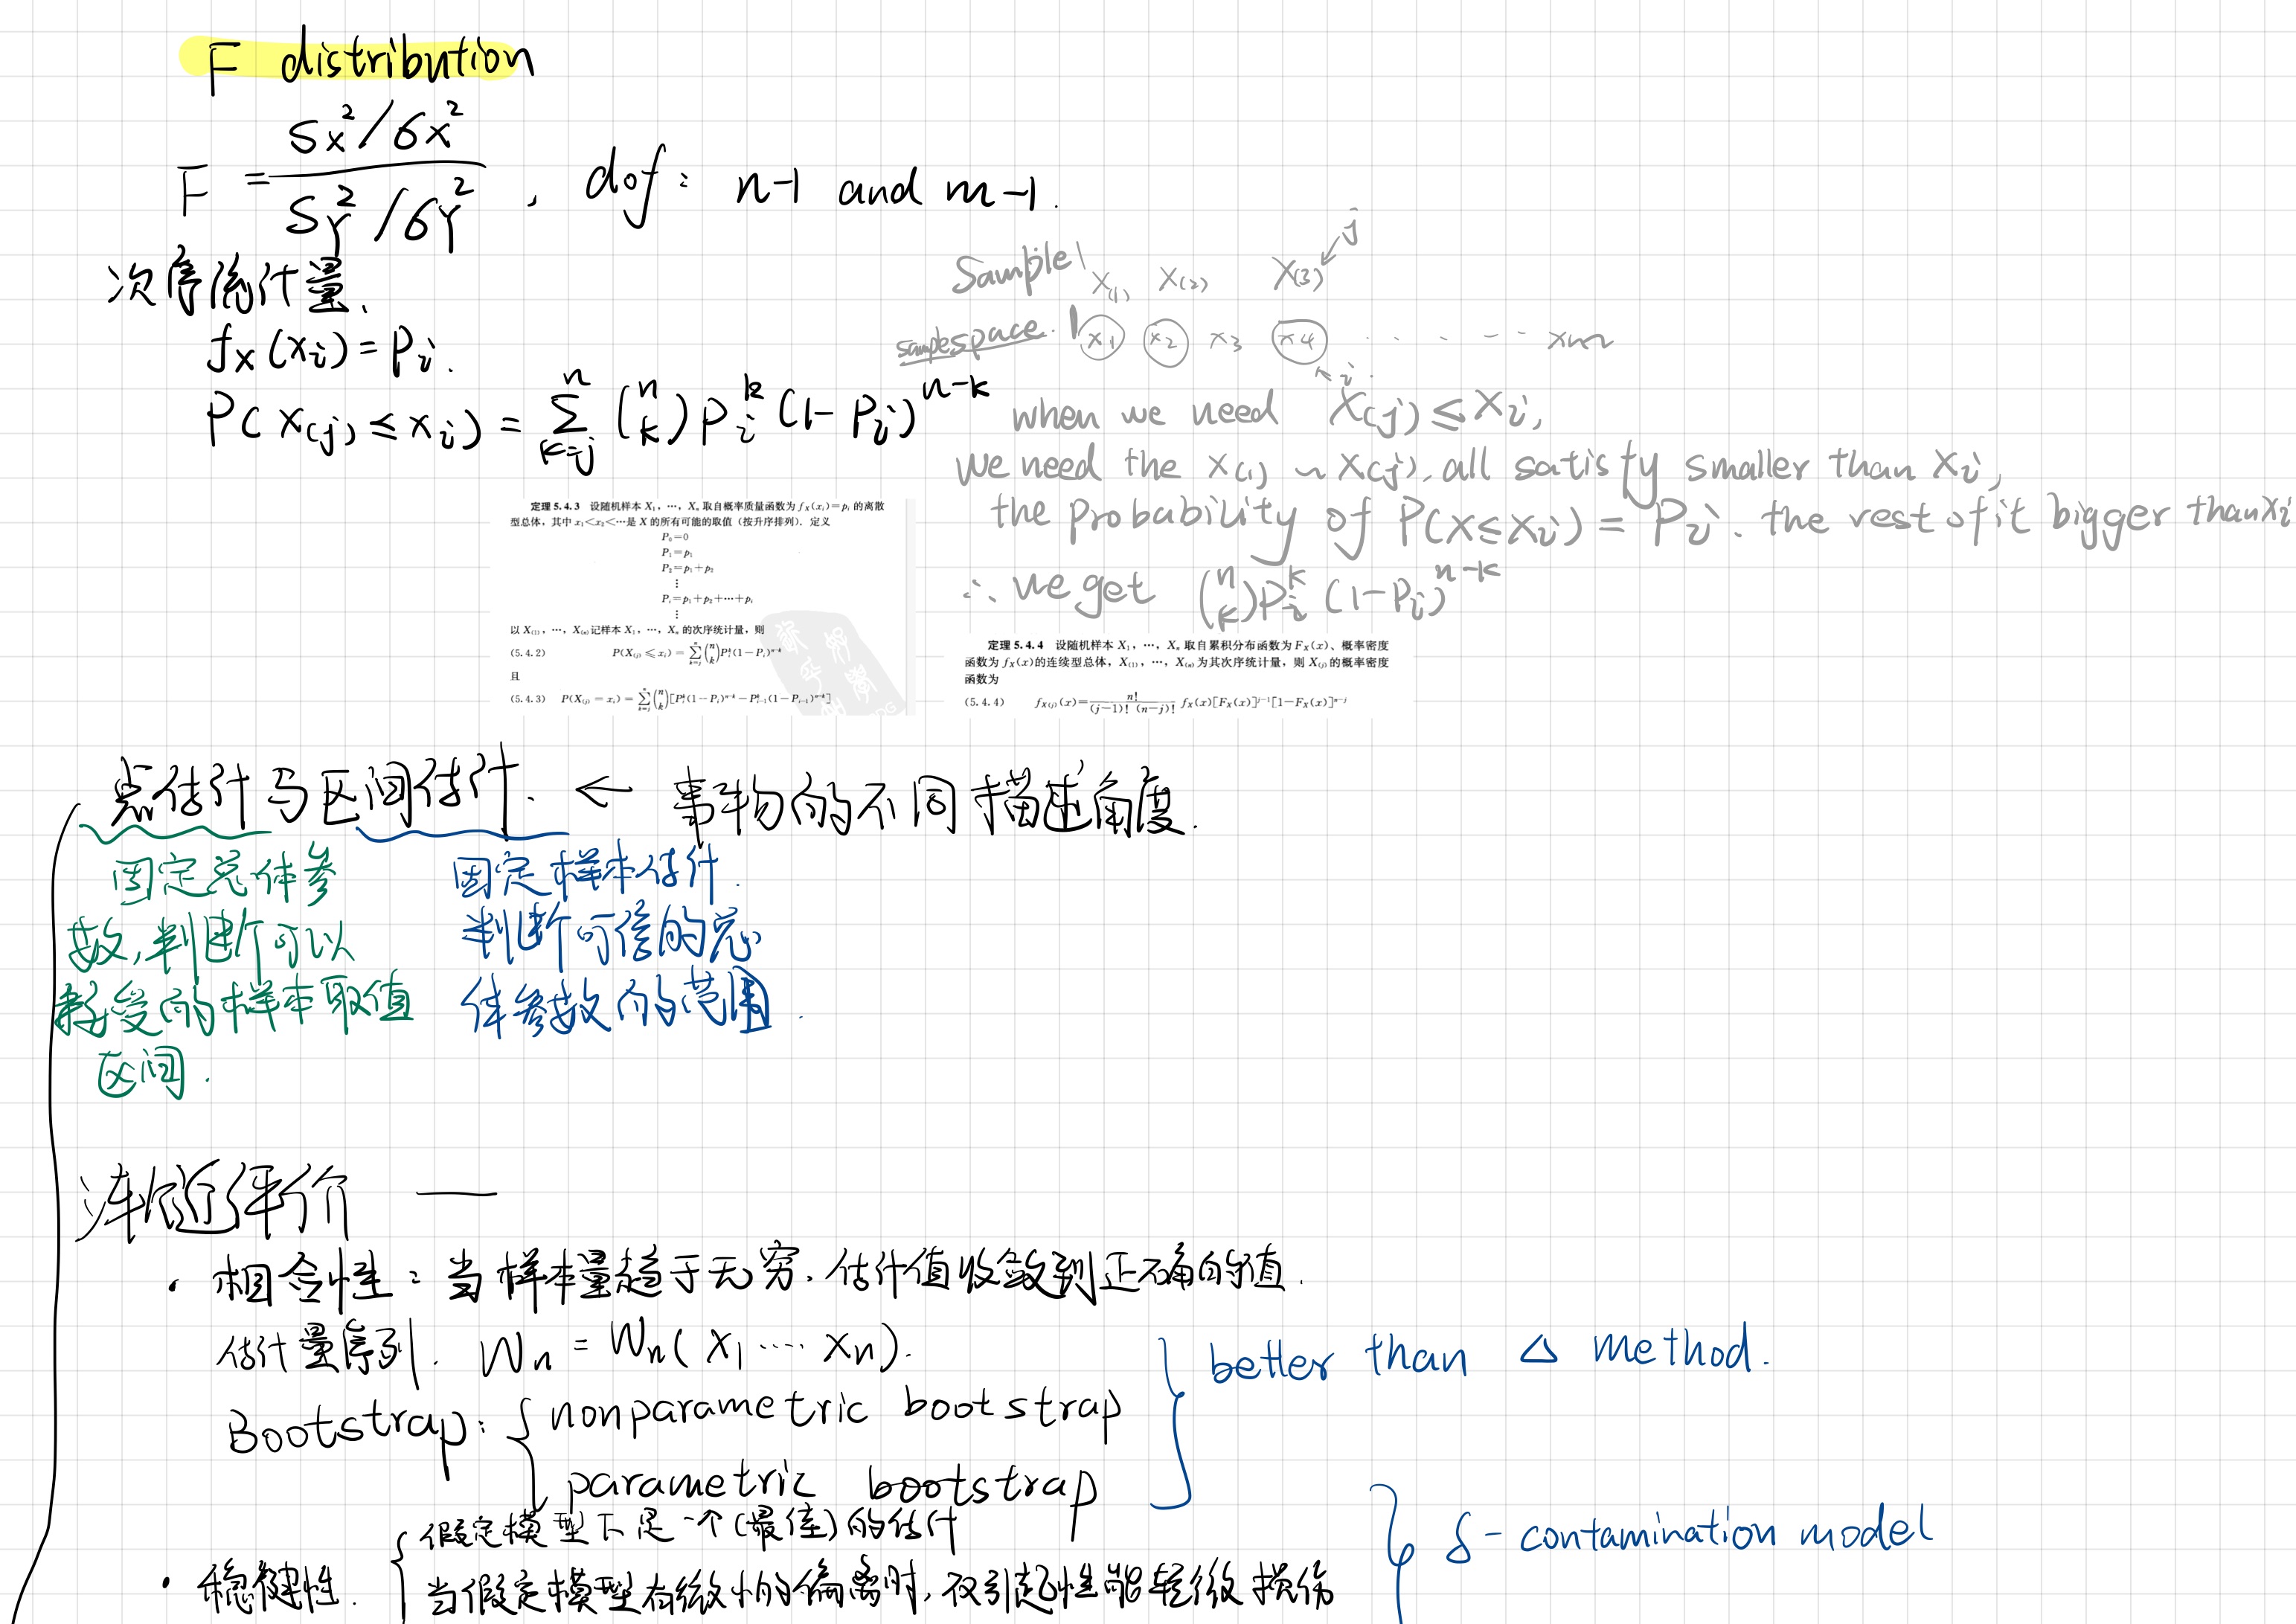 F distribution
F = (Sx²/σx²) / (SY²/σY²) , dof: n-1 and m-1.
次序统计量.
fX(xi)=Pi.
P(X(j) ≤ xi) = ∑_{k=j}^{n} (n k) Pi^k (1-Pi)^{n-k}
Sample X(1) X(2) X(3) ↙ j
samplespace. x1 x2 x3 x4 · · · · ·
↖ i.
when we need X(j) ≤ xi,
we need the X(1) ~ X(j), all satisfy smaller than xi,
the probability of P(X≤xi) = Pi. the rest of it bigger than xi
∴ we get (n k) Pi^k (1-Pi)^{n-k}
定理 5.4.3 设随机样本 X₁, ⋯, Xₙ 取自概率质量函数为 fX(xi)=pi 的离散
型总体，其中 x₁<x₂<⋯是 X 的所有可能的取值（按升序排列）．定义
P₀=0
P₁=p₁
P₂=p₁+p₂
⋮
Pi=p₁+p₂+⋯+pi
⋮
以 X(1), ⋯, X(n)记样本 X₁, ⋯, Xₙ 的次序统计量，则
(5.4.2) P(X(j) ≤ xi) = ∑_{k=j}^{n} (n k) Pi^k (1-Pi)^{n-k}
且
(5.4.3) P(X(j) = xi) = ∑_{k=j}^{n} (n k) [Pi^k (1-Pi)^{n-k} - P_{i-1}^k (1-P_{i-1})^{n-k}]
定理 5.4.4 设随机样本 X₁, ⋯, Xₙ 取自累积分布函数为 FX(x)、概率密度
函数为 fX(x)的连续型总体，X(1), ⋯, X(n)为其次序统计量，则 X(j) 的概率密度
函数为
(5.4.4) fX(j)(x) = n! / ((j-1)! (n-j)!) fX(x)[FX(x)]^{j-1}[1-FX(x)]^{n-j}
点估计与区间估计. ← 事物的不同描述角度.
固定总体参
数,判断可以
接受的样本取值
区间.
固定样本估计.
判断可信的总
体参数的范围.
渐近评价 —
· 相合性: 当样本量趋于无穷, 估计值收敛到正确的值.
估计量序列. Wn = Wn(X1 ···· Xn).
Bootstrap: { nonparametric bootstrap
parametric bootstrap
} better than Δ method.
假定模型下是一个(最佳)的估计
· 稳健性. { 当假定模型有微小的偏离时, 仅引起性能轻微损伤
} δ-contamination model